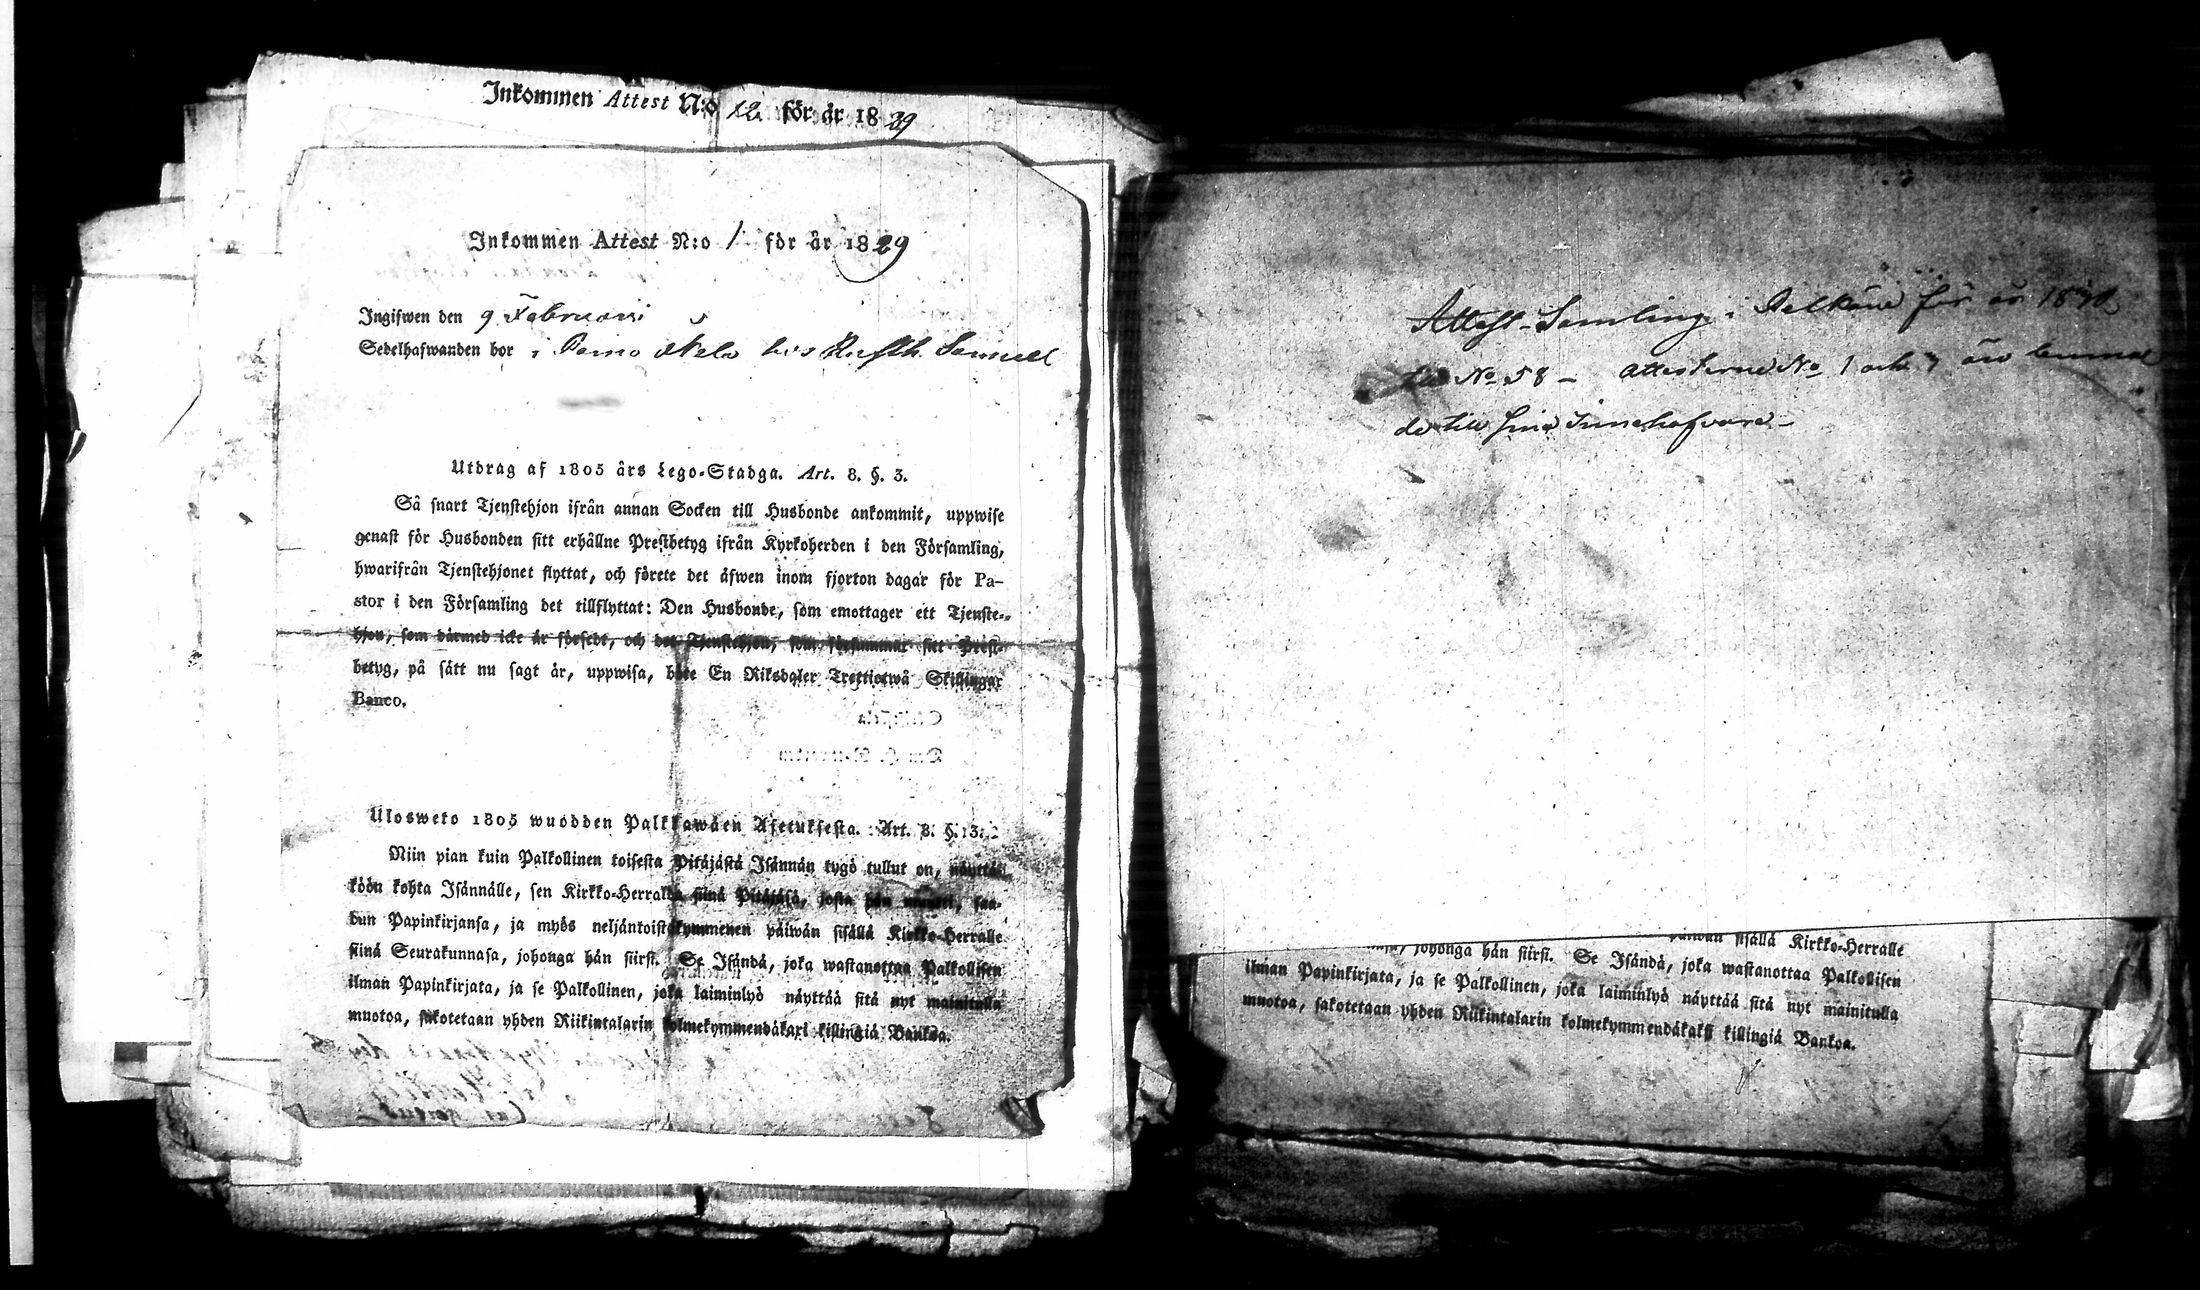 Inkommen Attest N:o 12. för år 1829
Inkommen Attest N:o 1 för år 1829
Ingifwen den 9 Februarii
Sedelhafwanden bor i hos Samuel
Utdrag af 1805 års Lego-Stadga. Art. 8. §. 3.
Så snart Tjenstehjon ifrån annan Socken till Husbonde ankommit, uppwise
genast för Husbonden sitt erhållne Prestbetyg ifrån Kyrkoherden i den Församling,
hwarifrån Tjenstehjonet flyttat, och förete det äfwen inom fjorton dagar för Pa-
stor i den Församling det tillflyttat: Den Husbonde, som emottager ett Tjenste-
hjon, som därmed icke är försedt, och det Tjenstehjon, som försummar sitt Prest-
betyg, på sätt nu sagt är, uppwisa, böte En Riksdaler Trettiotwå Skillingar
Banco.
Ulosweto 1805 wuodden Palkkawäen Asetuksesta. Art. 8. §. 3.
Niin pian kuin Palkollinen toisesta Pitäjästä Isännän tygö tullut on, näyttä-
köön kohta Isännälle, sen Kirkko-Herralda siinä Pitäjäsä, josta hän muutti, saa-
dun Papinkirjansa, ja myös neljäntoistakymmenen päiwän sisällä Kirkko-Herralle
siinä Seurakunnasa, johonga hän siirsi. Se Isändä, joka wastanottaa Palkollisen
ilman Papinkirjata, ja se Palkollinen, joka laiminlyö näyttää sitä nyt mainitulla
muotoa, sakotetaan yhden Riikintalarin kolmekymmendäkaxi killingiä Bankoa.
Attest-Samling i Pelkäne för år 18
till No 58 – Attesterne No 1 och äro lemna
de till sina Innehafvare –
päiwän sisällä Kirkko-Herralle
johonga hän siirsi. Se Isändä, joka wastanottaa Palkollisen
ilman Papinkirjata, ja se Palkollinen, joka laiminlyö näyttää sitä nyt mainitulla
muotoa, sakotetaan yhden Riikintalarin kolmekymmendäkaksi killingiä Bankoa.